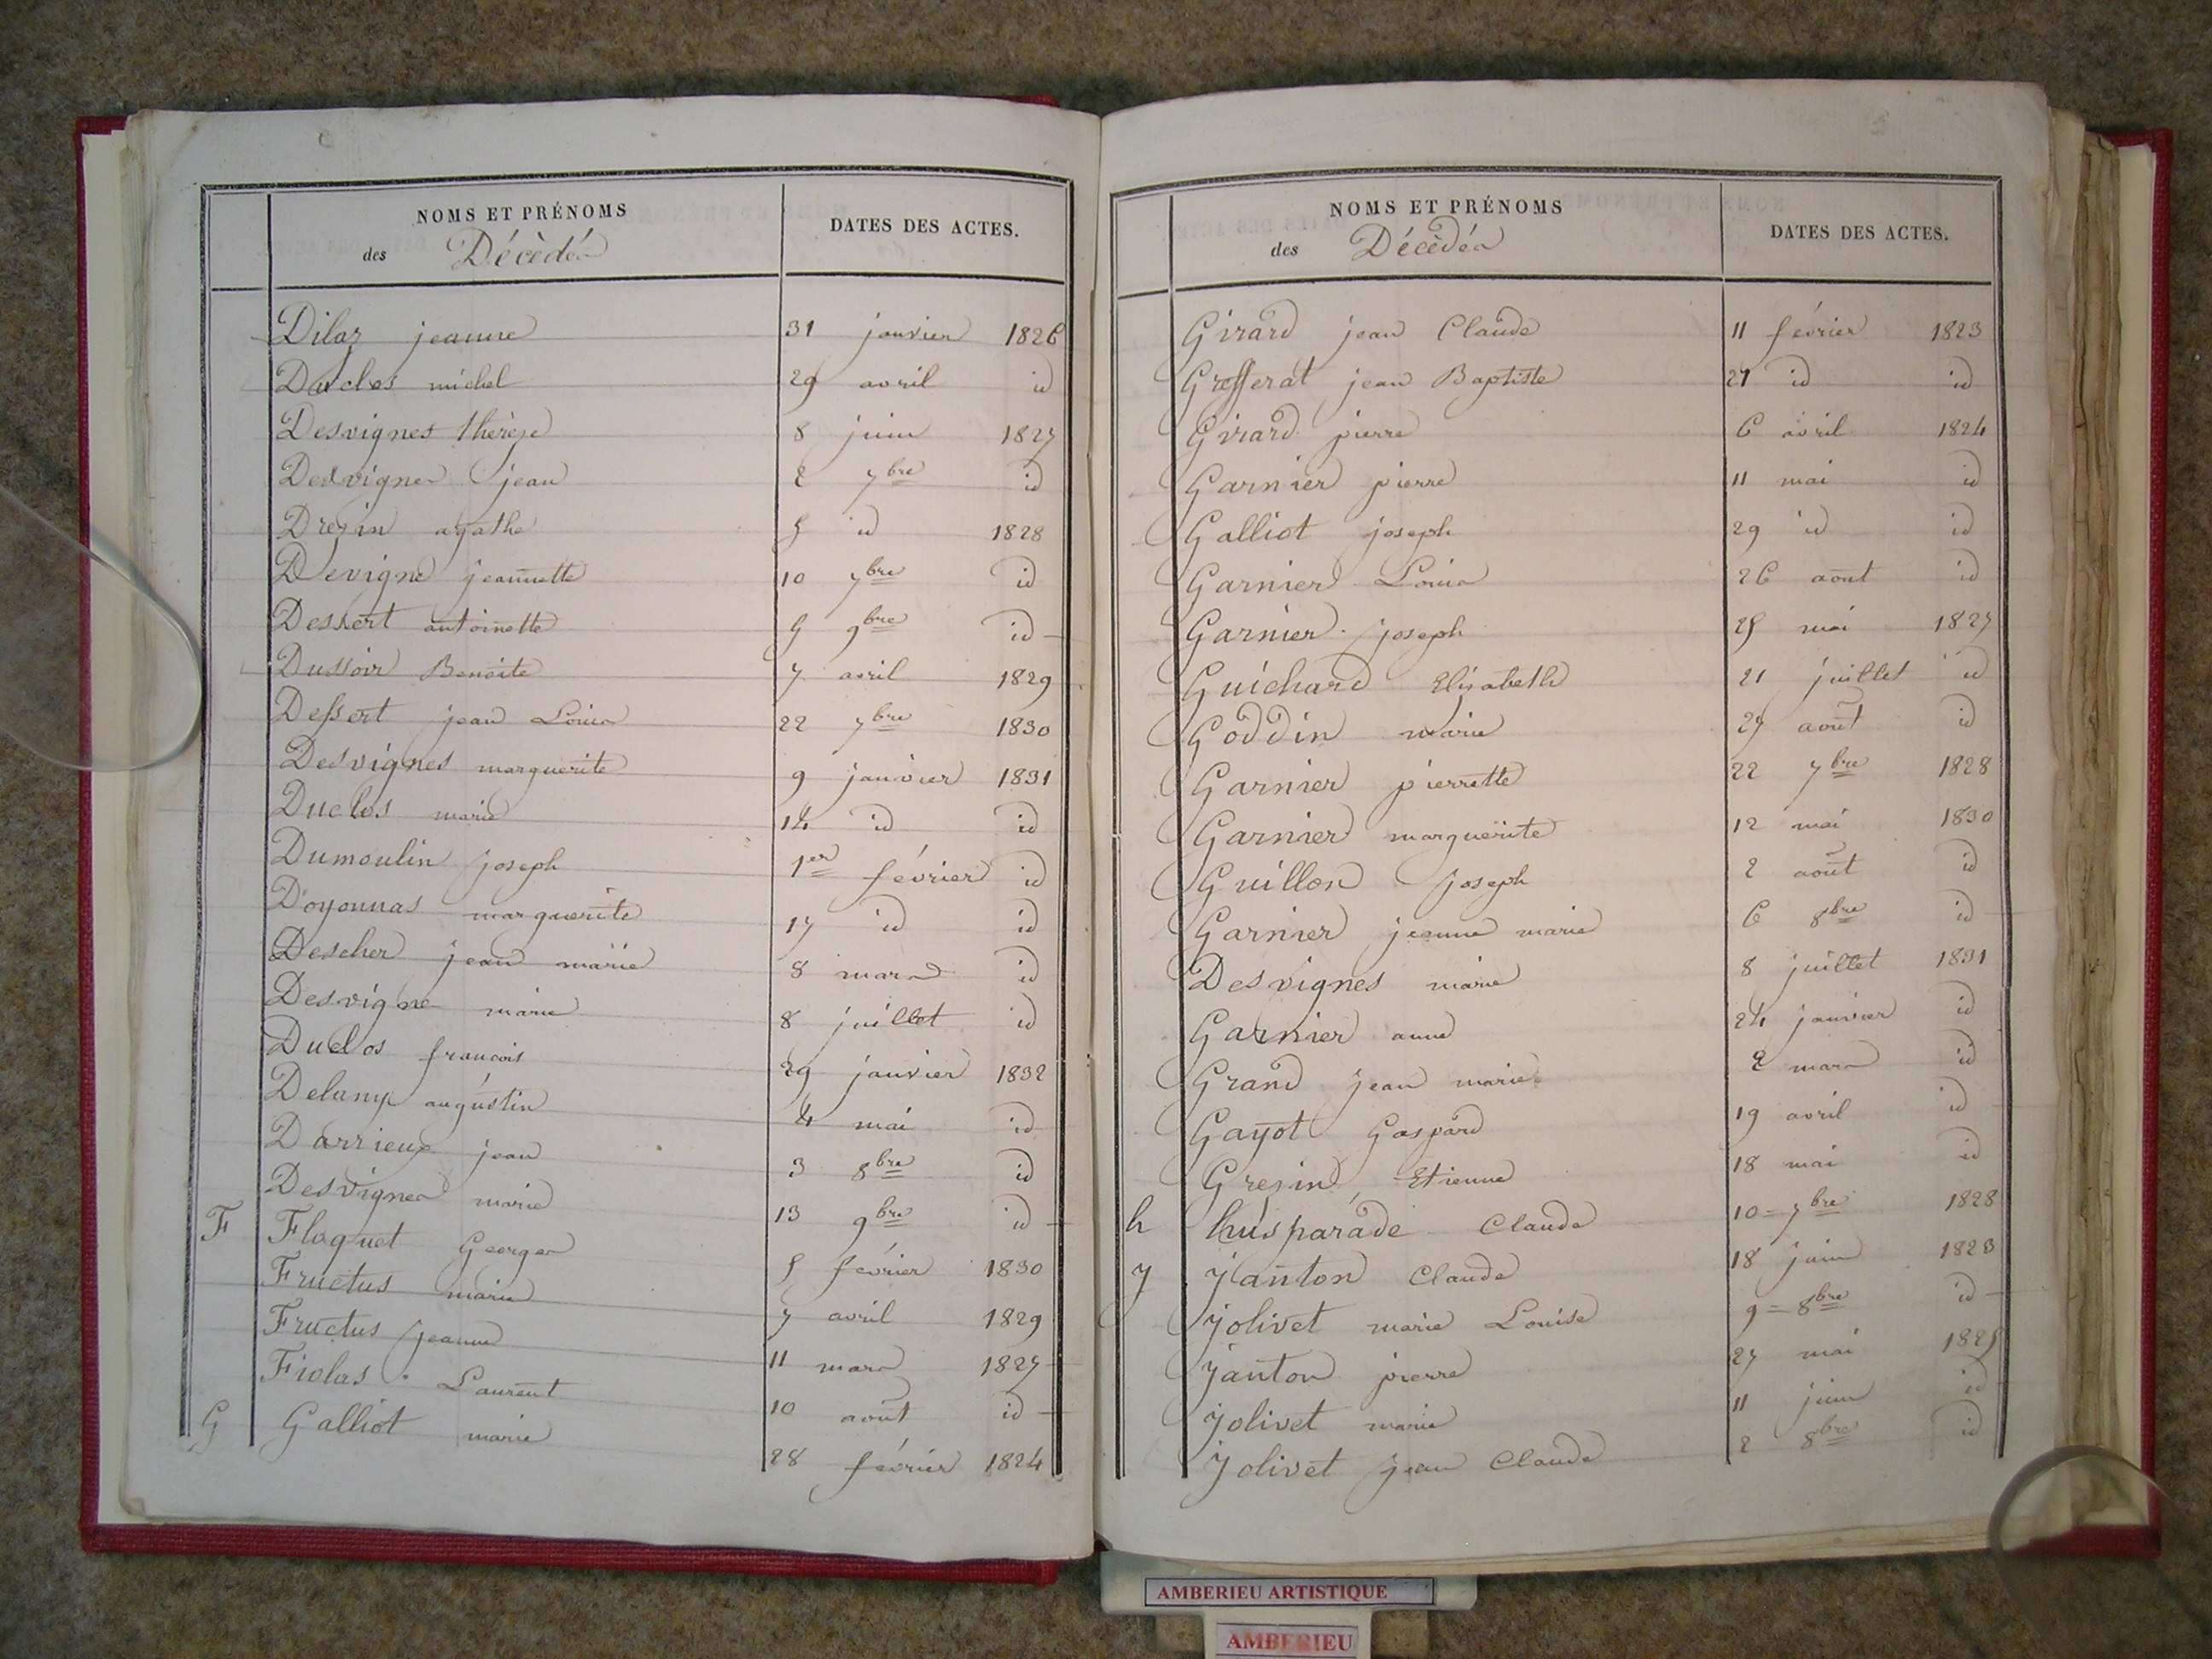 NOMS ET PRÉNOMS
des Décédés
DATES DES ACTES.
Dilaz jeanne 31 janvier 1826
Duclos michel 29 avril id
Desvignes thérèse 8 juin 1827
Desvignes jean 2 7bre id
Drezin agathe 5 id 1828
Devigne jeannette 10 7bre id
Dessert antoinette 5 9bre id
Dussoir Benoite 7 avril 1829
Dessert jean Louis 22 7bre 1830
Desvignes marguerite 9 janvier 1831
Duclos marie 14 id id
Dumoulin joseph 1er février id
Doyonnas marguerite 17 id id
Descher jean marie 8 mars id
Desvigne marie 8 juillet id
Duclos francois 29 janvier 1832
Delany augustin 4 mai id
Darrieux jean 3 8bre id
Desvignes marie 13 9bre id
F Floquet Georges 5 février 1830
Fructus marie 7 avril 1829
Fructus jeanne 11 mars 1827
Fiolas Laurent 10 août id
G Galliot marie 28 février 1824
NOMS ET PRÉNOMS
des Décédés
DATES DES ACTES.
Girard jean Claude 11 février 1823
Grefferat jean Baptiste 27 id id
Girard pierre 6 avril 1824
Garnier pierre 11 mai id
Galliot joseph 29 id id
Garnier Louis 26 aout id
Garnier joseph 25 mai 1827
Guichard Elisabeth 21 juillet id
Goddin marie 27 août id
Garnier pierrette 22 7bre 1828
Garnier marguerite 12 mai 1830
Guillon joseph 2 août id
Garnier jeanne marie 6 8bre id
Desvignes marie 8 juillet 1831
Garnier anne 24 janvier id
Grand jean marie 2 mars id
Gayot Gaspard 19 avril id
Grezin Etienne 18 mai id
h husparade Claude 10 = 7bre 1828
J Janton Claude 18 juin 1823
Jolivet marie Louise 9 = 8bre id
Janton pierre 27 mai 1825
Jolivet marie 11 juin id
Jolivet jean Claude 2 8bre id
AMBERIEU ARTISTIQUE
AMBERIEU